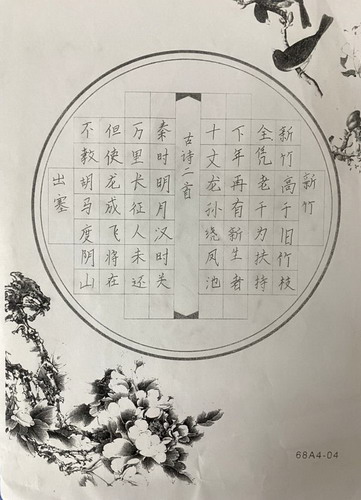 新竹
新竹高于旧竹枝
全凭老干为扶持
下年再有新生者
十丈龙孙绕凤池
古诗二首
秦时明月汉时关
万里长征人未还
但使龙成飞将在
不教胡马度阴山
出塞
68A4-04